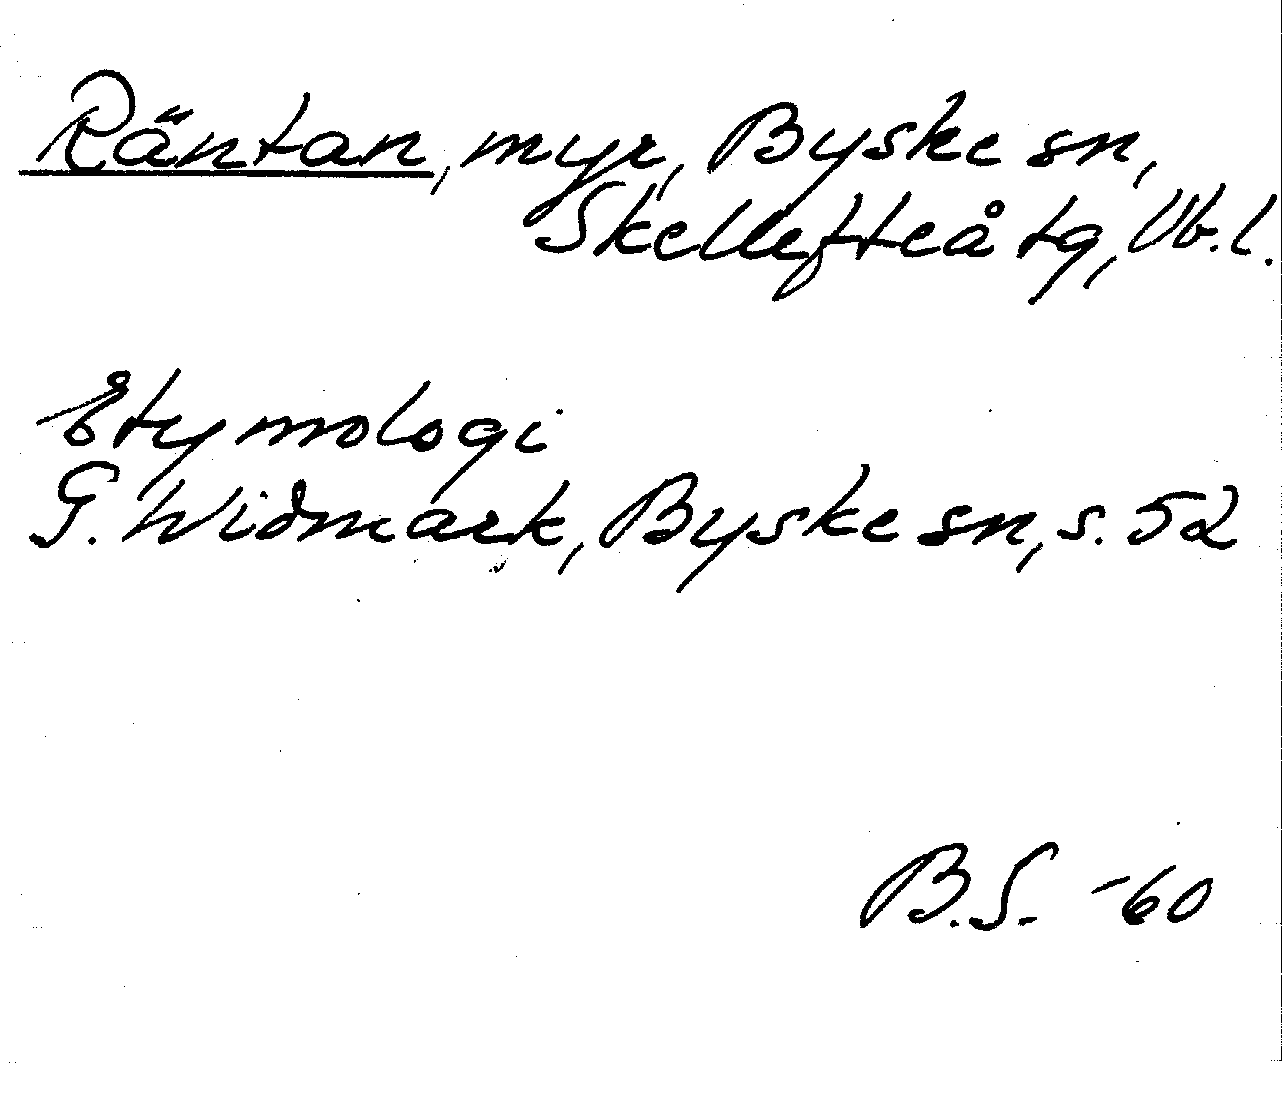 Räntan, myr, Byske sn,
Skellefteå tg, Vb.l.
Etymologi
G. Widmark, Byske sn, s. 52
B.S. -60